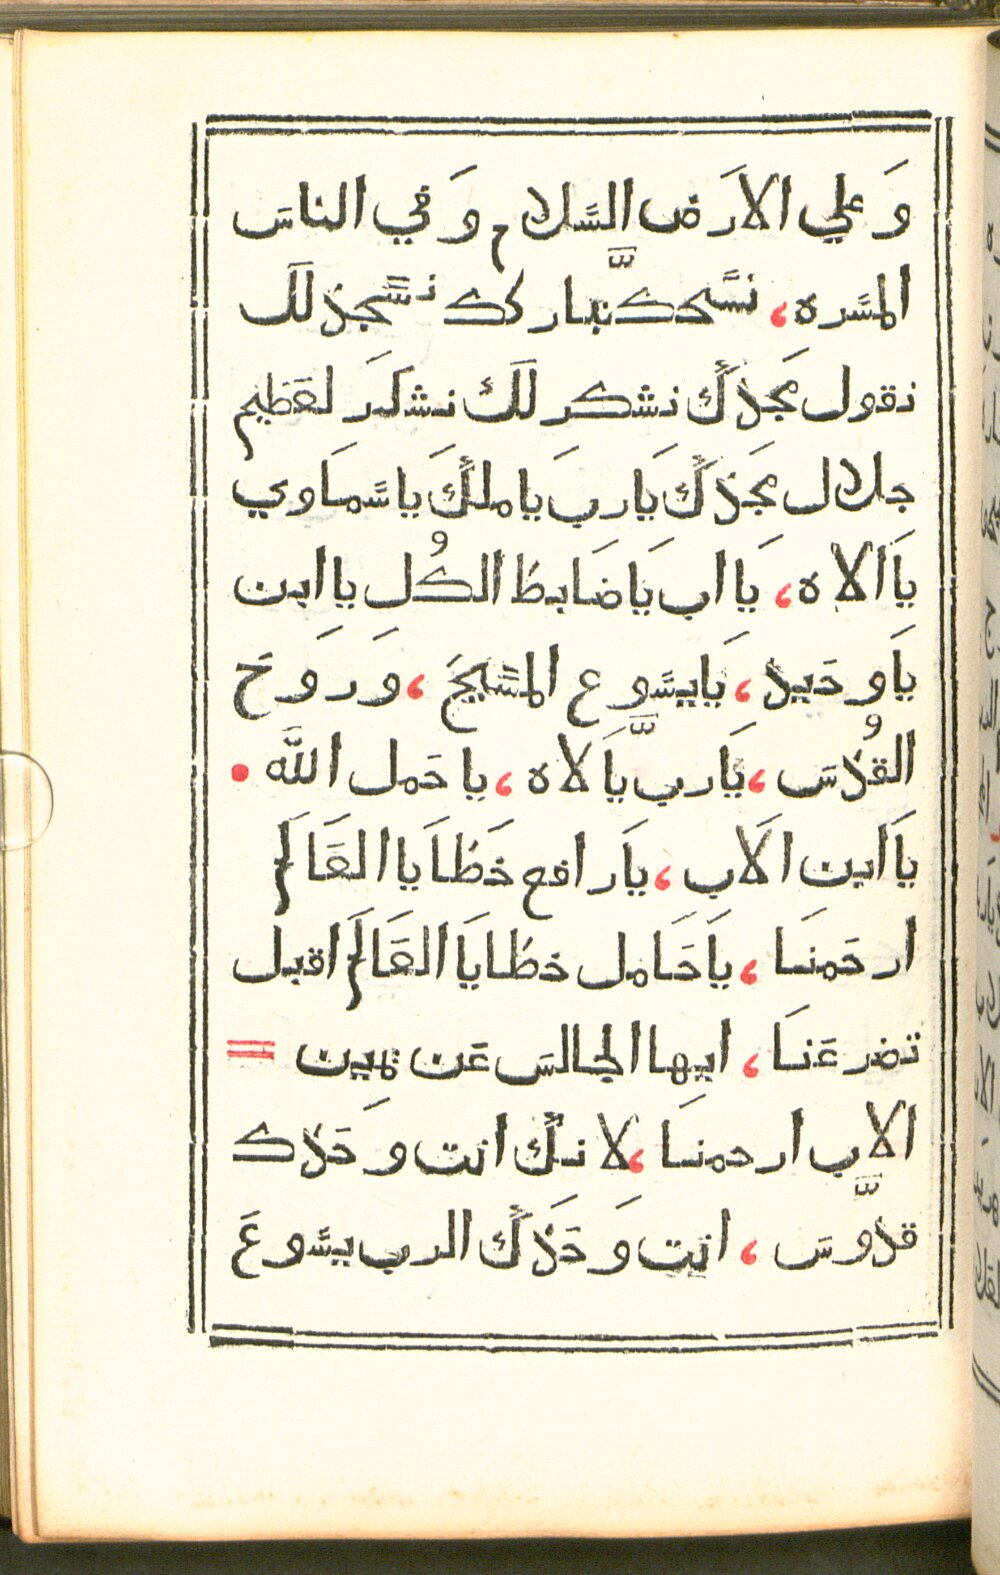 وَ علي الاَرَض السَلام وَ في الناسَ
المسَره، نسَبحك نباركك نسَجد لَك
نقول مَجدكَ نشكر لَكَ نشكرَ لعَظيم
جلال مَجدكَ يَارب يَا ملكَ يا سَماوي
يَا الاه، يَا اب يَا ضَابط الكُل يا ابن
يَا وحَيد، يَا يسَوع المسَيحَ، وَ رَوحَ
القُدسَ، يَا رب يَا لاه، يا حَمل اللَّه •
يَا ابن الاَب، يَا رافع خَطَايَا العَالَم
ارحَمنَا، يَا حَامل خطايَا العَالَم اقبل
تضرعَنَا، ايها الجالسَ عَن يمين =
الاَب ارحمنَا، لانكَ انت وحَدك
قدوسَ، انت وَحَدكَ الرب يسَوعَ